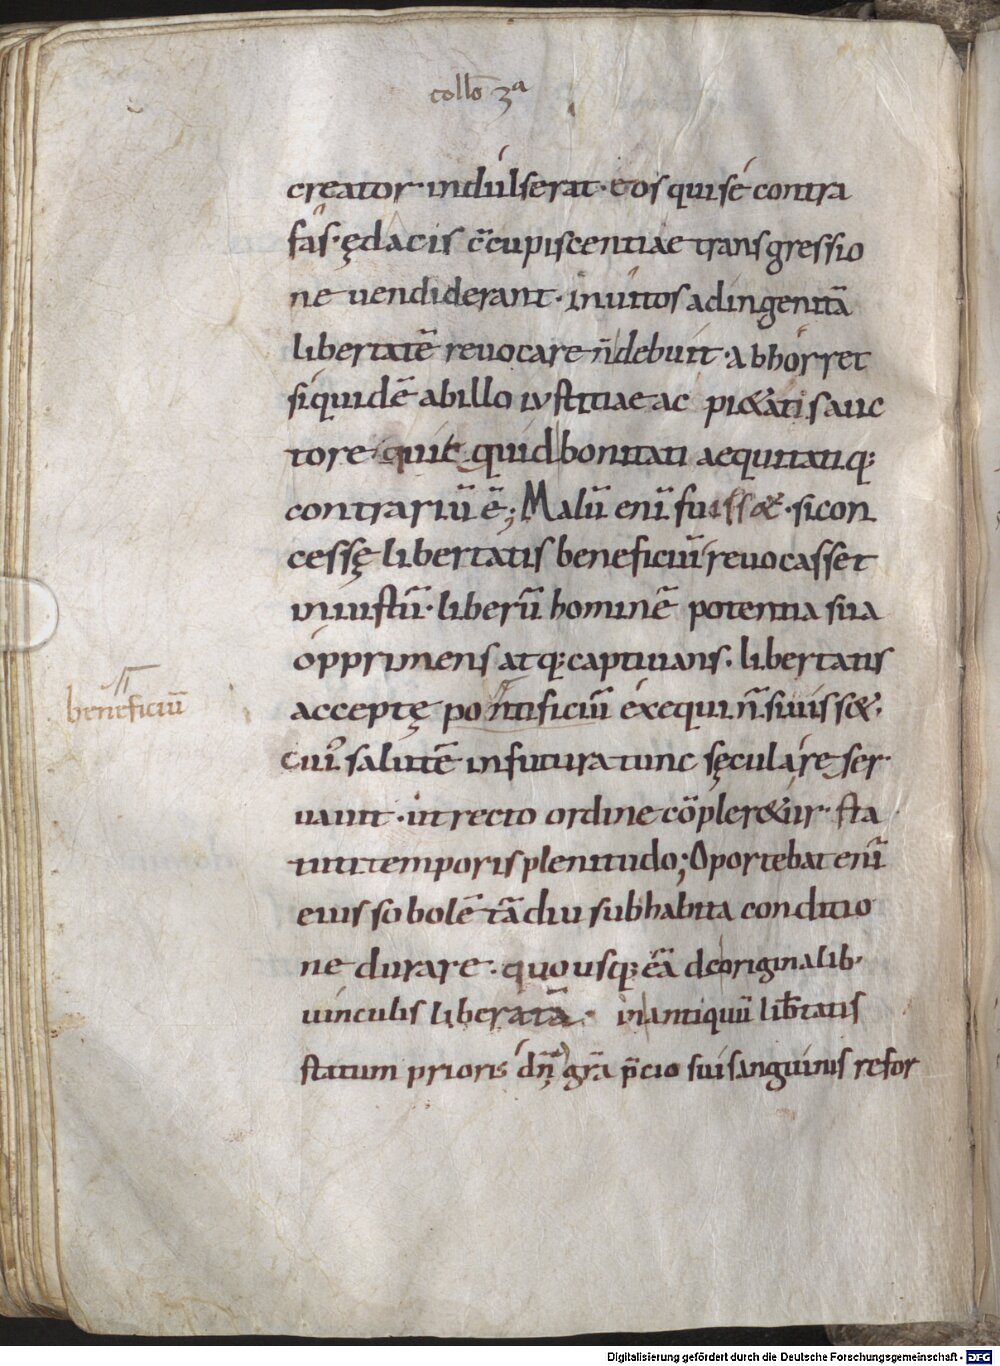 collō 3ᵃ
creator· indulserat· eos qui se contra
fas· ędacis c̄cupiscentiae transgressio
ne uendiderant· inuitos ad ingenitā
libertatē reuocare n̄ debuit· abhorret
siquidē ab illo iustitiae ac pi&atis auc
tore quicquid bonitati aequitatiq;
contrariū ē; Malū enī fuiss&· si con
cessę libertatis beneficiū reuocasset
iniustū· liberū hominē potentia sua
opprimens atq; captiuans· libertatis
acceptę pontificiū exequi n̄ siuiss&·
beneficiū
cuī salutē in futura tunc sęcula reser
uauit· ut recto ordine cōpler&ur· sta
tuti temporis plenitudo; Oportebat enī
eius sobolē tādiu sub habita conditio
ne durare· quousq; eā de originalib·
uinculis liberatā· in antiquū lib̄tatis
statum prioris dn̄i grā p̄cio sui sanguinis refor
Digitalisierung gefördert durch die Deutsche Forschungsgemeinschaft - DFG